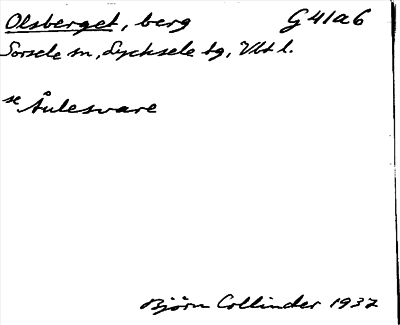 Olsberget, berg G 41 a 6
Sorsele sn, Lycksele tg, Vlt l.
se Åulesvare
Björn Collinder 1937